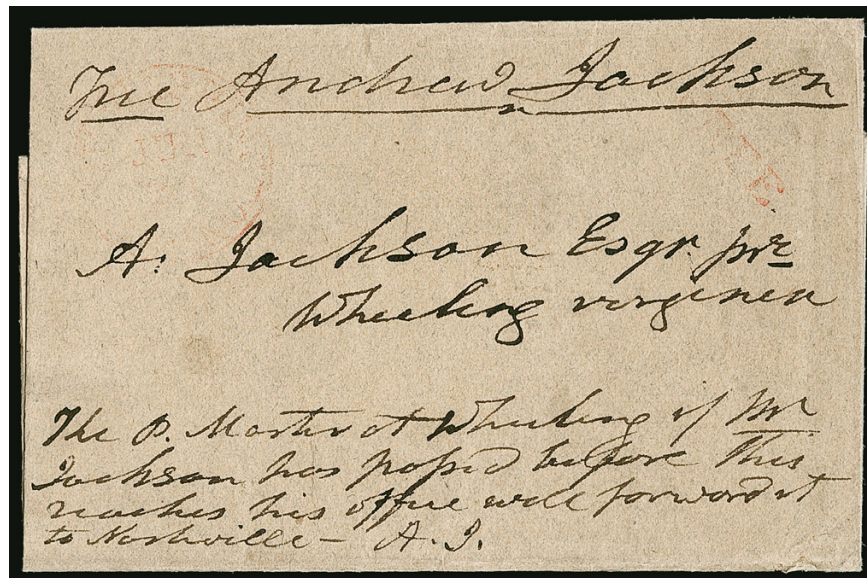 Free Andrew Jackson
A. Jackson Esqr. jnr
Wheeling virginia
The P. Master at Wheeling if Mr
Jackson has passed before This
reaches his office will forward it
to Nashville – A. J.